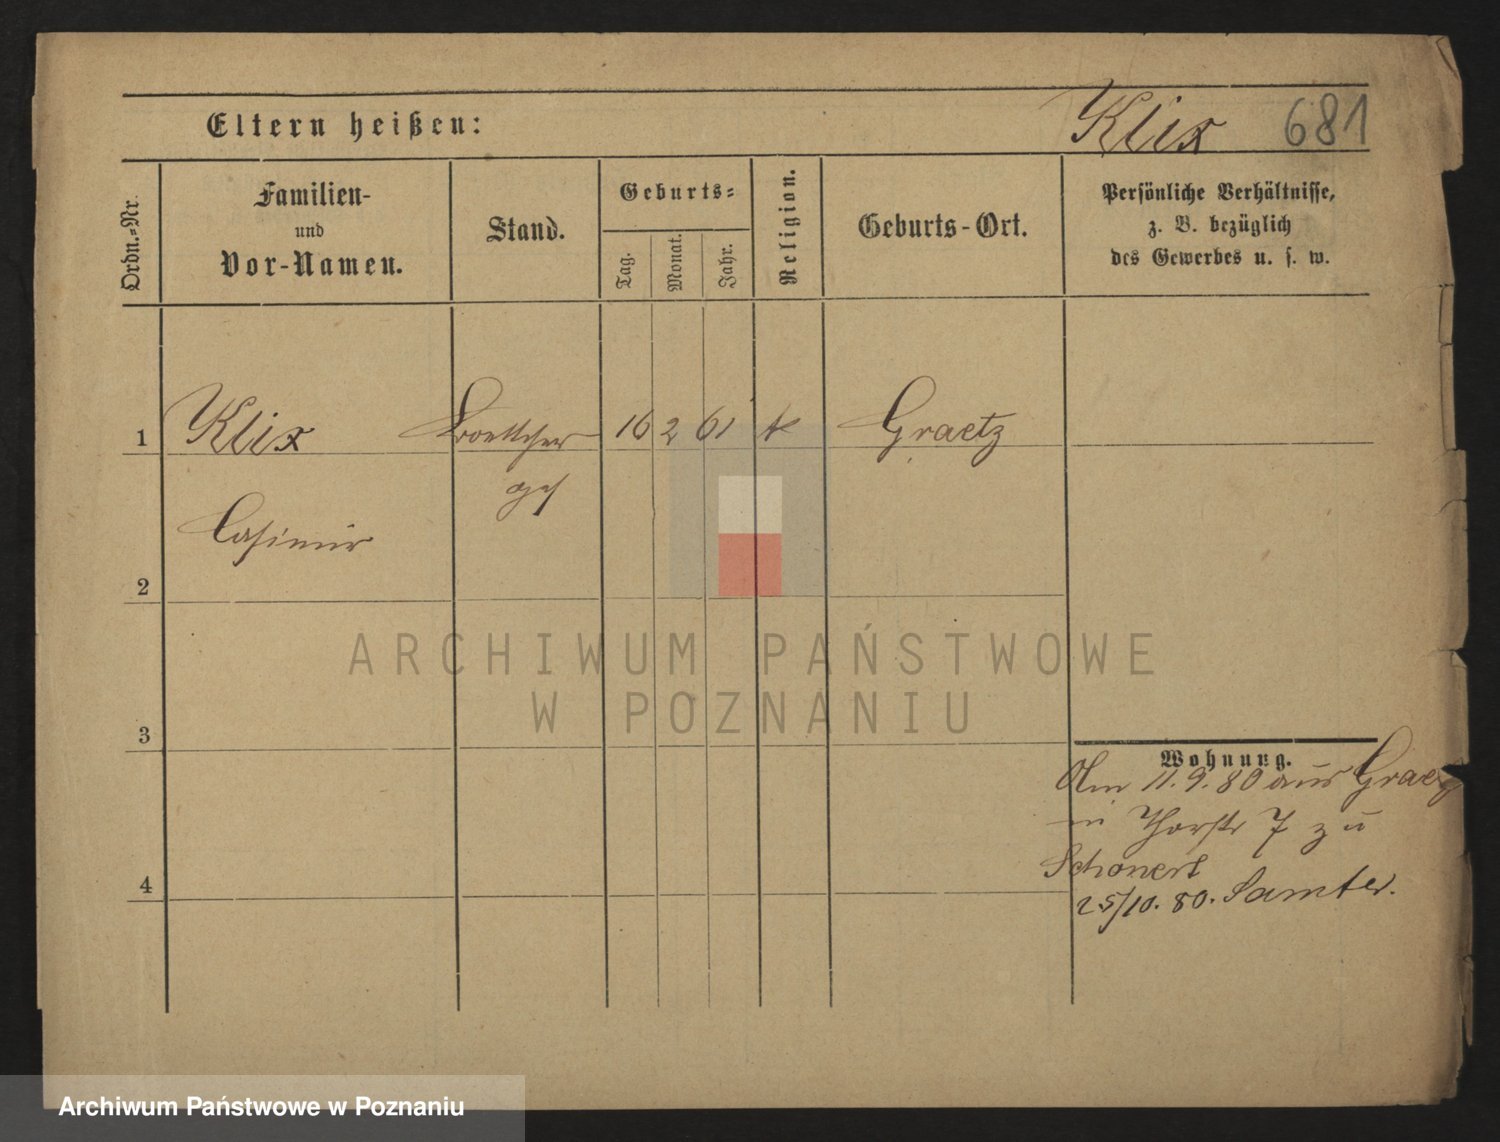 Eltern heißen:
Klix 681
Ordn.-Nr.
Familien-
und
Vor-Namen.
Stand.
Geburts-
Tag.
Monat.
Jahr.
Religion.
Geburts-Ort.
Persönliche Verhältnisse,
z. B. bezüglich
des Gewerbes u. s. w.
1 Klix Boettcher 16 2 61 k Graetz
ges
Casimir
2
ARCHIWUM PAŃSTWOWE
W POZNANIU
3
Wohnung.
11.9.80 aus Graetz
in Thorstr 7 zu
Schonert
4
25/10. 80. Samter.
Archiwum Państwowe w Poznaniu